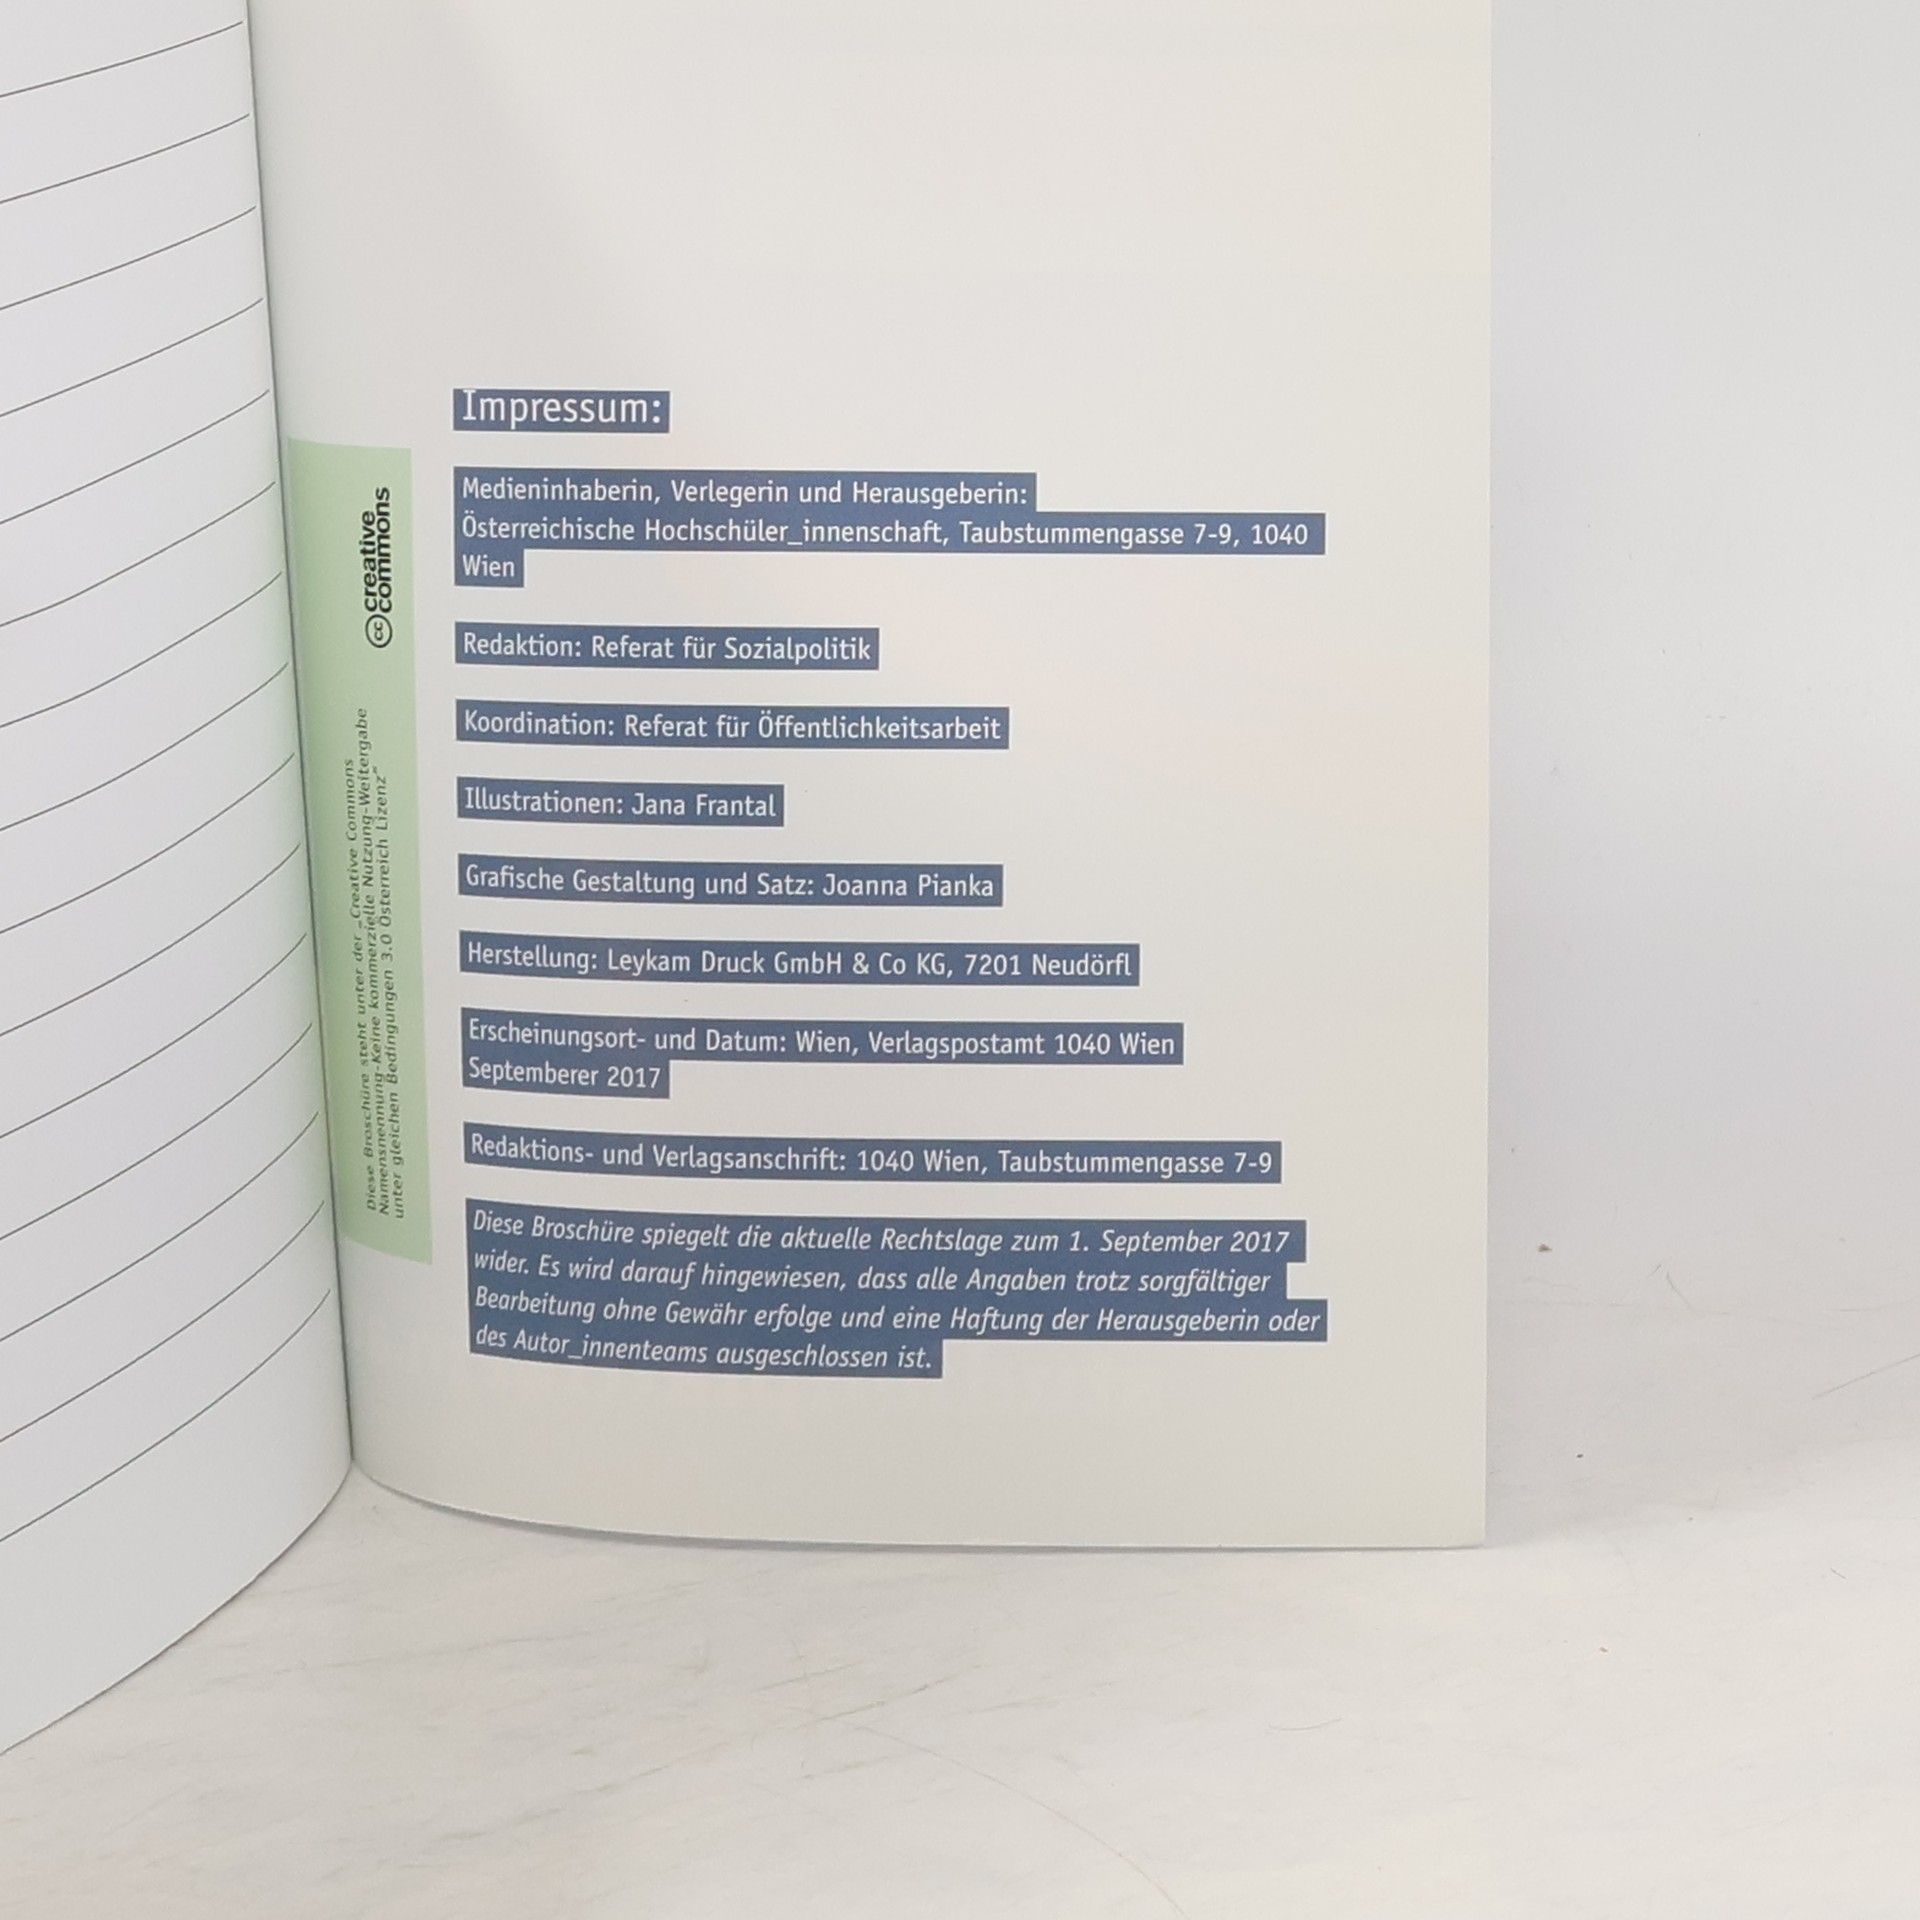 Impressum:
Medieninhaberin, Verlegerin und Herausgeberin:
Österreichische Hochschüler_innenschaft, Taubstummengasse 7-9, 1040
Wien
Redaktion: Referat für Sozialpolitik
Koordination: Referat für Öffentlichkeitsarbeit
Illustrationen: Jana Frantal
Grafische Gestaltung und Satz: Joanna Pianka
Herstellung: Leykam Druck GmbH & Co KG, 7201 Neudörfl
Erscheinungsort- und Datum: Wien, Verlagspostamt 1040 Wien
Septemberer 2017
Redaktions- und Verlagsanschrift: 1040 Wien, Taubstummengasse 7-9
Diese Broschüre spiegelt die aktuelle Rechtslage zum 1. September 2017
wider. Es wird darauf hingewiesen, dass alle Angaben trotz sorgfältiger
Bearbeitung ohne Gewähr erfolge und eine Haftung der Herausgeberin oder
des Autor_innenteams ausgeschlossen ist.
Diese Broschüre steht unter der „Creative Commons
Namensnennung-Keine kommerzielle Nutzung-Weitergabe
unter gleichen Bedingungen 3.0 Österreich Lizenz“
cc creative
commons